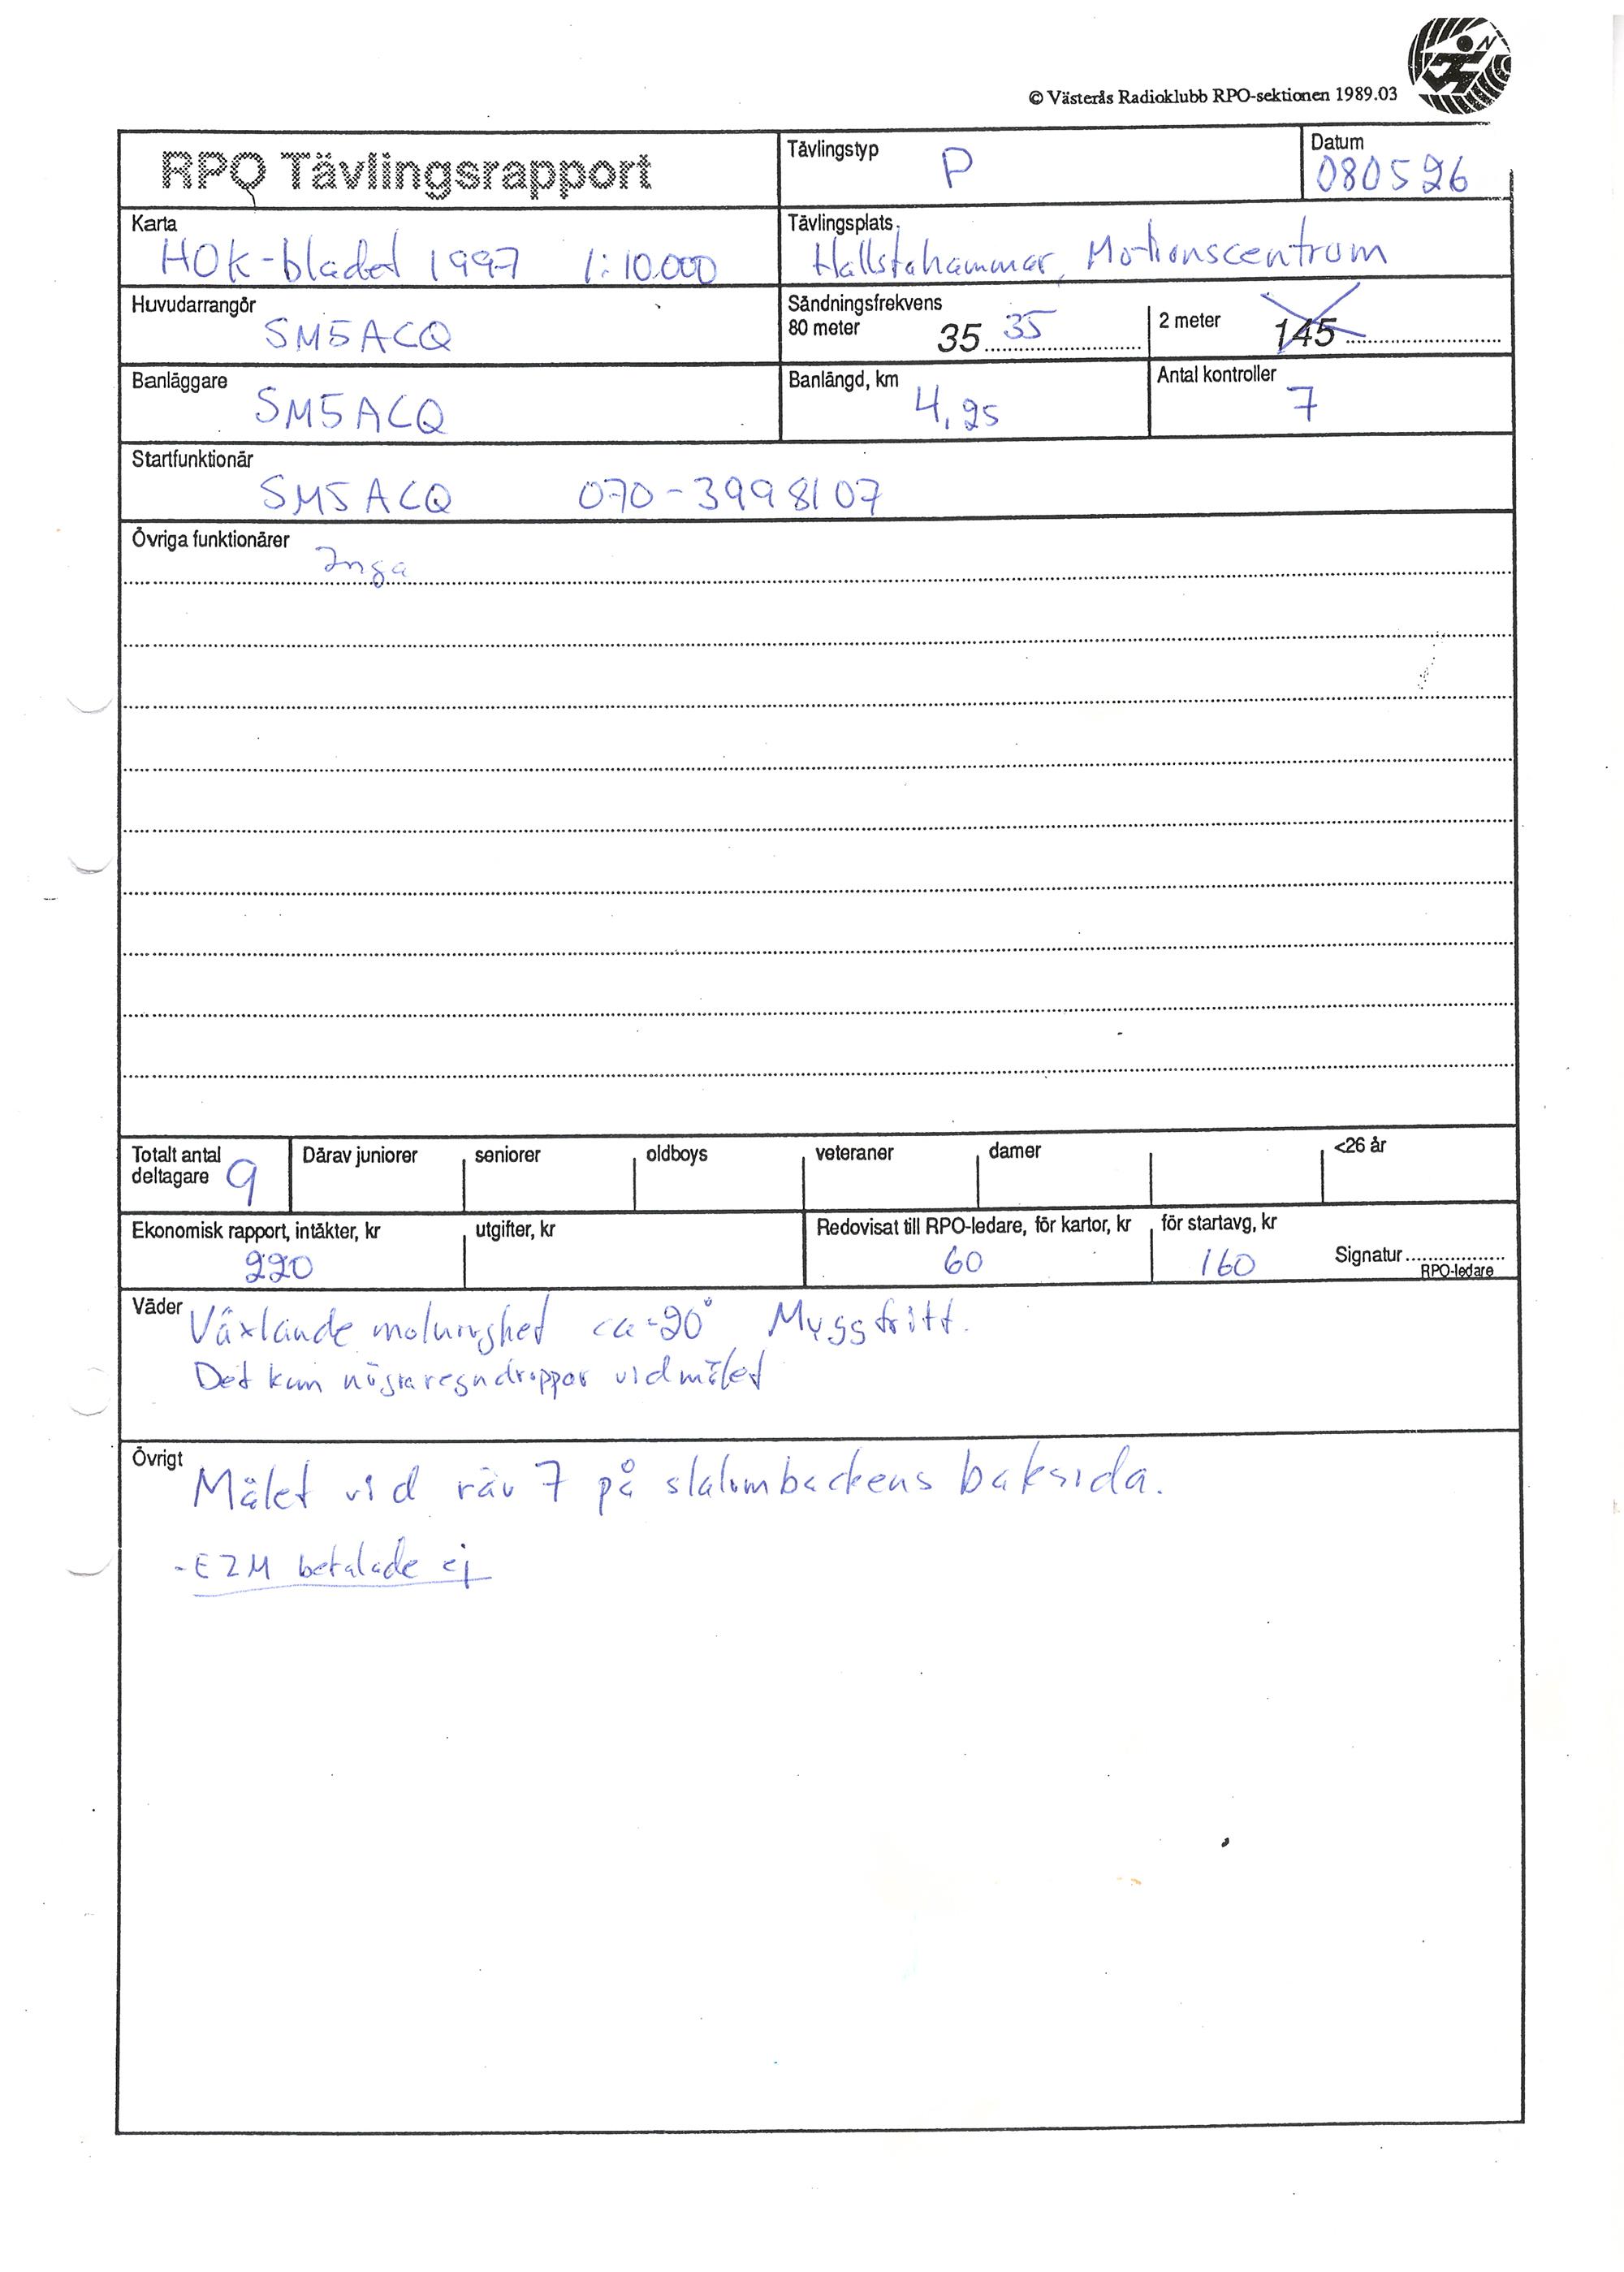 © Västerås Radioklubb RPO-sektionen 1989.03
N
RPO Tävlingsrapport
Tävlingstyp P
Datum 080526
Karta HOK-bladet 1997 1:10.000
Tävlingsplats Hallstahammar, Motionscentrum
Huvudarrangör SM5ACQ
Sändningsfrekvens
80 meter 35 35
2 meter 145
Banläggare SM5ACQ
Banlängd, km 4,25
Antal kontroller 7
Startfunktionär
SM5ACQ 070-3998107
Övriga funktionärer Inga
Totalt antal deltagare 9
Därav juniorer seniorer oldboys veteraner damer <26 år
Ekonomisk rapport, intäkter, kr 220
utgifter, kr
Redovisat till RPO-ledare, för kartor, kr 60
för startavg, kr 160
Signatur
RPO-ledare
Väder Växlande molnighet ca 20° Myggfritt.
Det kom några regndroppar vid målet
Övrigt Målet vid räv 7 på slalombackens baksida.
-EZM betalade ej